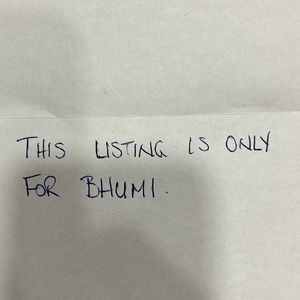 THIS LISTING IS ONLY
FOR BHUMI.